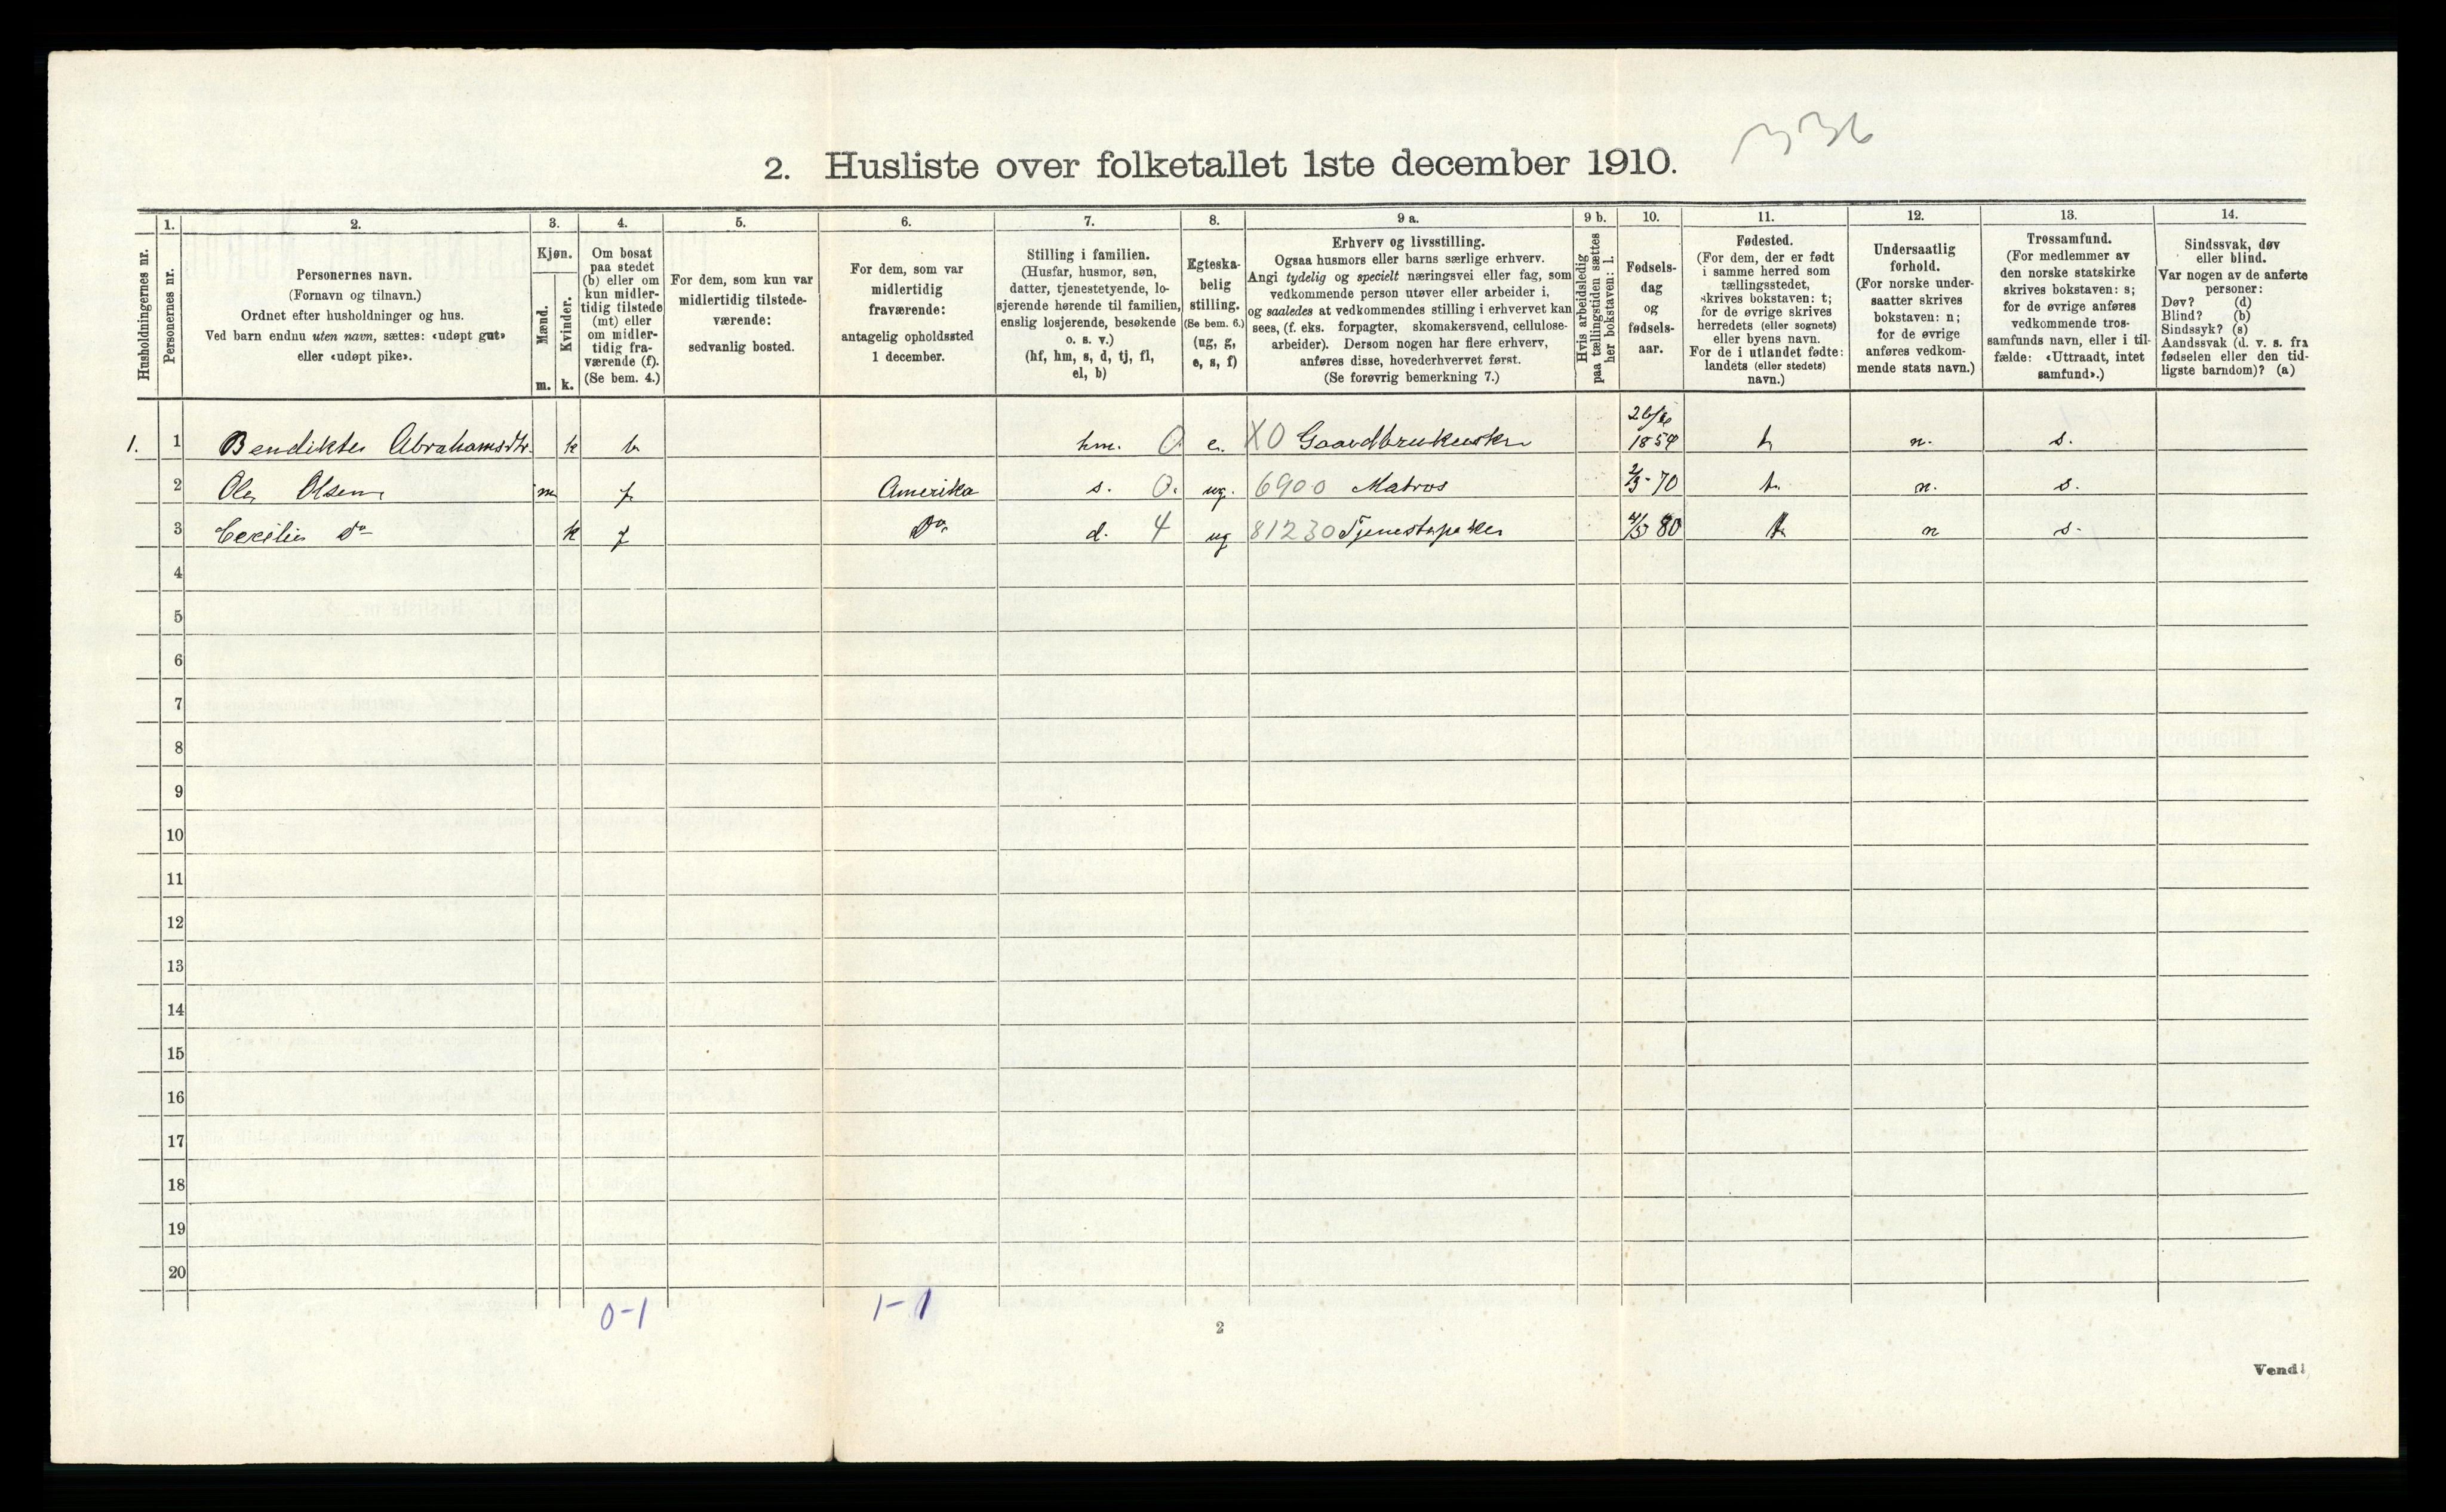 336
2. Husliste over folketallet 1ste december 1910.
Husholdningernes nr.
1.
Personernes nr.
2.
Personernes navn.
(Fornavn og tilnavn.)
Ordnet efter husholdninger og hus.
Ved barn endnu uten navn, sættes: «udøpt gut»
eller «udøpt pike».
3.
Kjøn.
Mænd.
Kvinder.
m. k.
4.
Om bosat
paa stedet
(b) eller om
kun midler-
tidig tilstede
(mt) eller
om midler-
tidig fra-
værende (f).
(Se bem. 4.)
5.
For dem, som kun var
midlertidig tilstede-
værende:
sedvanlig bosted.
6.
For dem, som var
midlertidig
fraværende:
antagelig opholdssted
1 december.
7.
Stilling i familien.
(Husfar, husmor, søn,
datter, tjenestetyende, lo-
sjerende hørende til familien,
enslig losjerende, besøkende
o. s. v.)
(hf, hm, s, d, tj, fl,
el, b)
8.
Egteska-
belig
stilling.
(Se bem. 6.)
(ug, g,
e, s, f)
9 a.
Erhverv og livsstilling.
Ogsaa husmors eller barns særlige erhverv.
Angi tydelig og specielt næringsvei eller fag, som
vedkommende person utøver eller arbeider i,
og saaledes at vedkommendes stilling i erhvervet kan
sees, (f. eks. forpagter, skomakersvend, cellulose-
arbeider). Dersom nogen har flere erhverv,
anføres disse, hovederhvervet først.
(Se forøvrig bemerkning 7.)
9 b.
Hvis arbeidsledig
paa tællingstiden sættes
her bokstaven: l.
10.
Fødsels-
dag
og
fødsels-
aar.
11.
Fødested.
(For dem, der er født
i samme herred som
tællingsstedet,
skrives bokstaven: t;
for de øvrige skrives
herredets (eller sognets)
eller byens navn.
For de i utlandet fødte:
landets (eller stedets)
navn.)
12.
Undersaatlig
forhold.
(For norske under-
saatter skrives
bokstaven: n;
for de øvrige
anføres vedkom-
mende stats navn.)
13.
Trossamfund.
(For medlemmer av
den norske statskirke
skrives bokstaven: s;
for de øvrige anføres
vedkommende tros-
samfunds navn, eller i til-
fælde: «Uttraadt, intet
samfund».)
14.
Sindssvak, døv
eller blind.
Var nogen av de anførte
personer:
Døv? (d)
Blind? (b)
Sindssyk? (s)
Aandssvak (d. v. s. fra
fødselen eller den tid-
ligste barndom)? (a)
1. 1 Bendikte Abrahamsdtr. k b hm. 0 e. X0 Gaardbrukerske 1854 t n. s.
2 Ole Olsen m f Amerika s. 0. ug. 6900 Matros 2/3-70 t. n. s.
3 Cecilie do k f Do d. 4 ug 81230 Tjenestepike 4/5 80 t n s.
4
5
6
7
8
9
10
11
12
13
14
15
16
17
18
19
20
0-1 1-1
2
Vend!